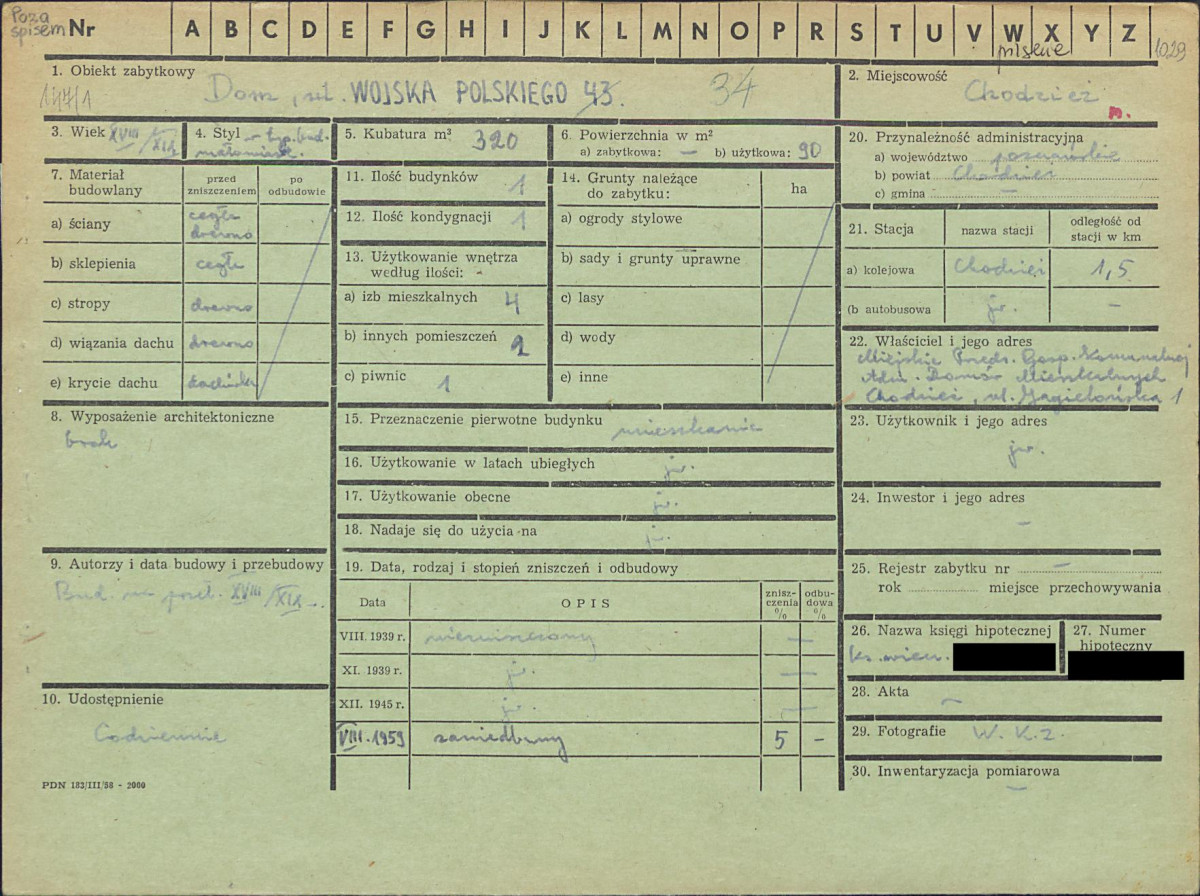 Poza
spisem Nr A B C D E F G H I J K L M N O P R S T U V W X Y Z
pisene 1029
1. Obiekt zabytkowy
147/1 Dom, ul. WOJSKA POLSKIEGO 43. 34
2. Miejscowość
Chodzież
3. Wiek XVIII/XIX
4. Styl – typ. bud.
małomiast.
5. Kubatura m³ 320
6. Powierzchnia w m²
a) zabytkowa: — b) użytkowa: 90
7. Materiał budowlany
przed zniszczeniem
po odbudowie
a) ściany cegła drewno
b) sklepienia cegła
c) stropy drewno
d) wiązania dachu drewno
e) krycie dachu dachówka
8. Wyposażenie architektoniczne
brak
9. Autorzy i data budowy i przebudowy
Bud. na przeł. XVIII/XIX w.
10. Udostępnienie
Codziennie
PDN 183/III/58 - 2000
11. Ilość budynków 1
12. Ilość kondygnacji 1
13. Użytkowanie wnętrza
według ilości:
a) izb mieszkalnych 4
b) innych pomieszczeń 2
c) piwnic 1
14. Grunty należące
do zabytku:
ha
a) ogrody stylowe
b) sady i grunty uprawne
c) lasy
d) wody
e) inne
15. Przeznaczenie pierwotne budynku mieszkanie
16. Użytkowanie w latach ubiegłych jw.
17. Użytkowanie obecne jw.
18. Nadaje się do użycia na jw.
19. Data, rodzaj i stopień zniszczeń i odbudowy
Data OPIS znisz-czenia % odbu-dowa %
VIII. 1939 r. niezniszczony —
XI. 1939 r. jw. —
XII. 1945 r. jw. —
VIII. 1959 zaniedbany 5 –
20. Przynależność administracyjna
a) województwo poznańskie
b) powiat Chodzież
c) gmina —
21. Stacja
nazwa stacji
odległość od
stacji w km
a) kolejowa Chodzież 1,5
(b autobusowa jw. —
22. Właściciel i jego adres
Miejskie Przeds. Gosp. Komunalnej
Adm. Domów Mieszkalnych
Chodzież, ul. Jagiellońska 1
23. Użytkownik i jego adres
jw.
24. Inwestor i jego adres
—
25. Rejestr zabytku nr —
rok miejsce przechowywania
26. Nazwa księgi hipotecznej
ks. wiecz.
27. Numer
hipoteczny
28. Akta —
29. Fotografie W. K. Z.
30. Inwentaryzacja pomiarowa
—